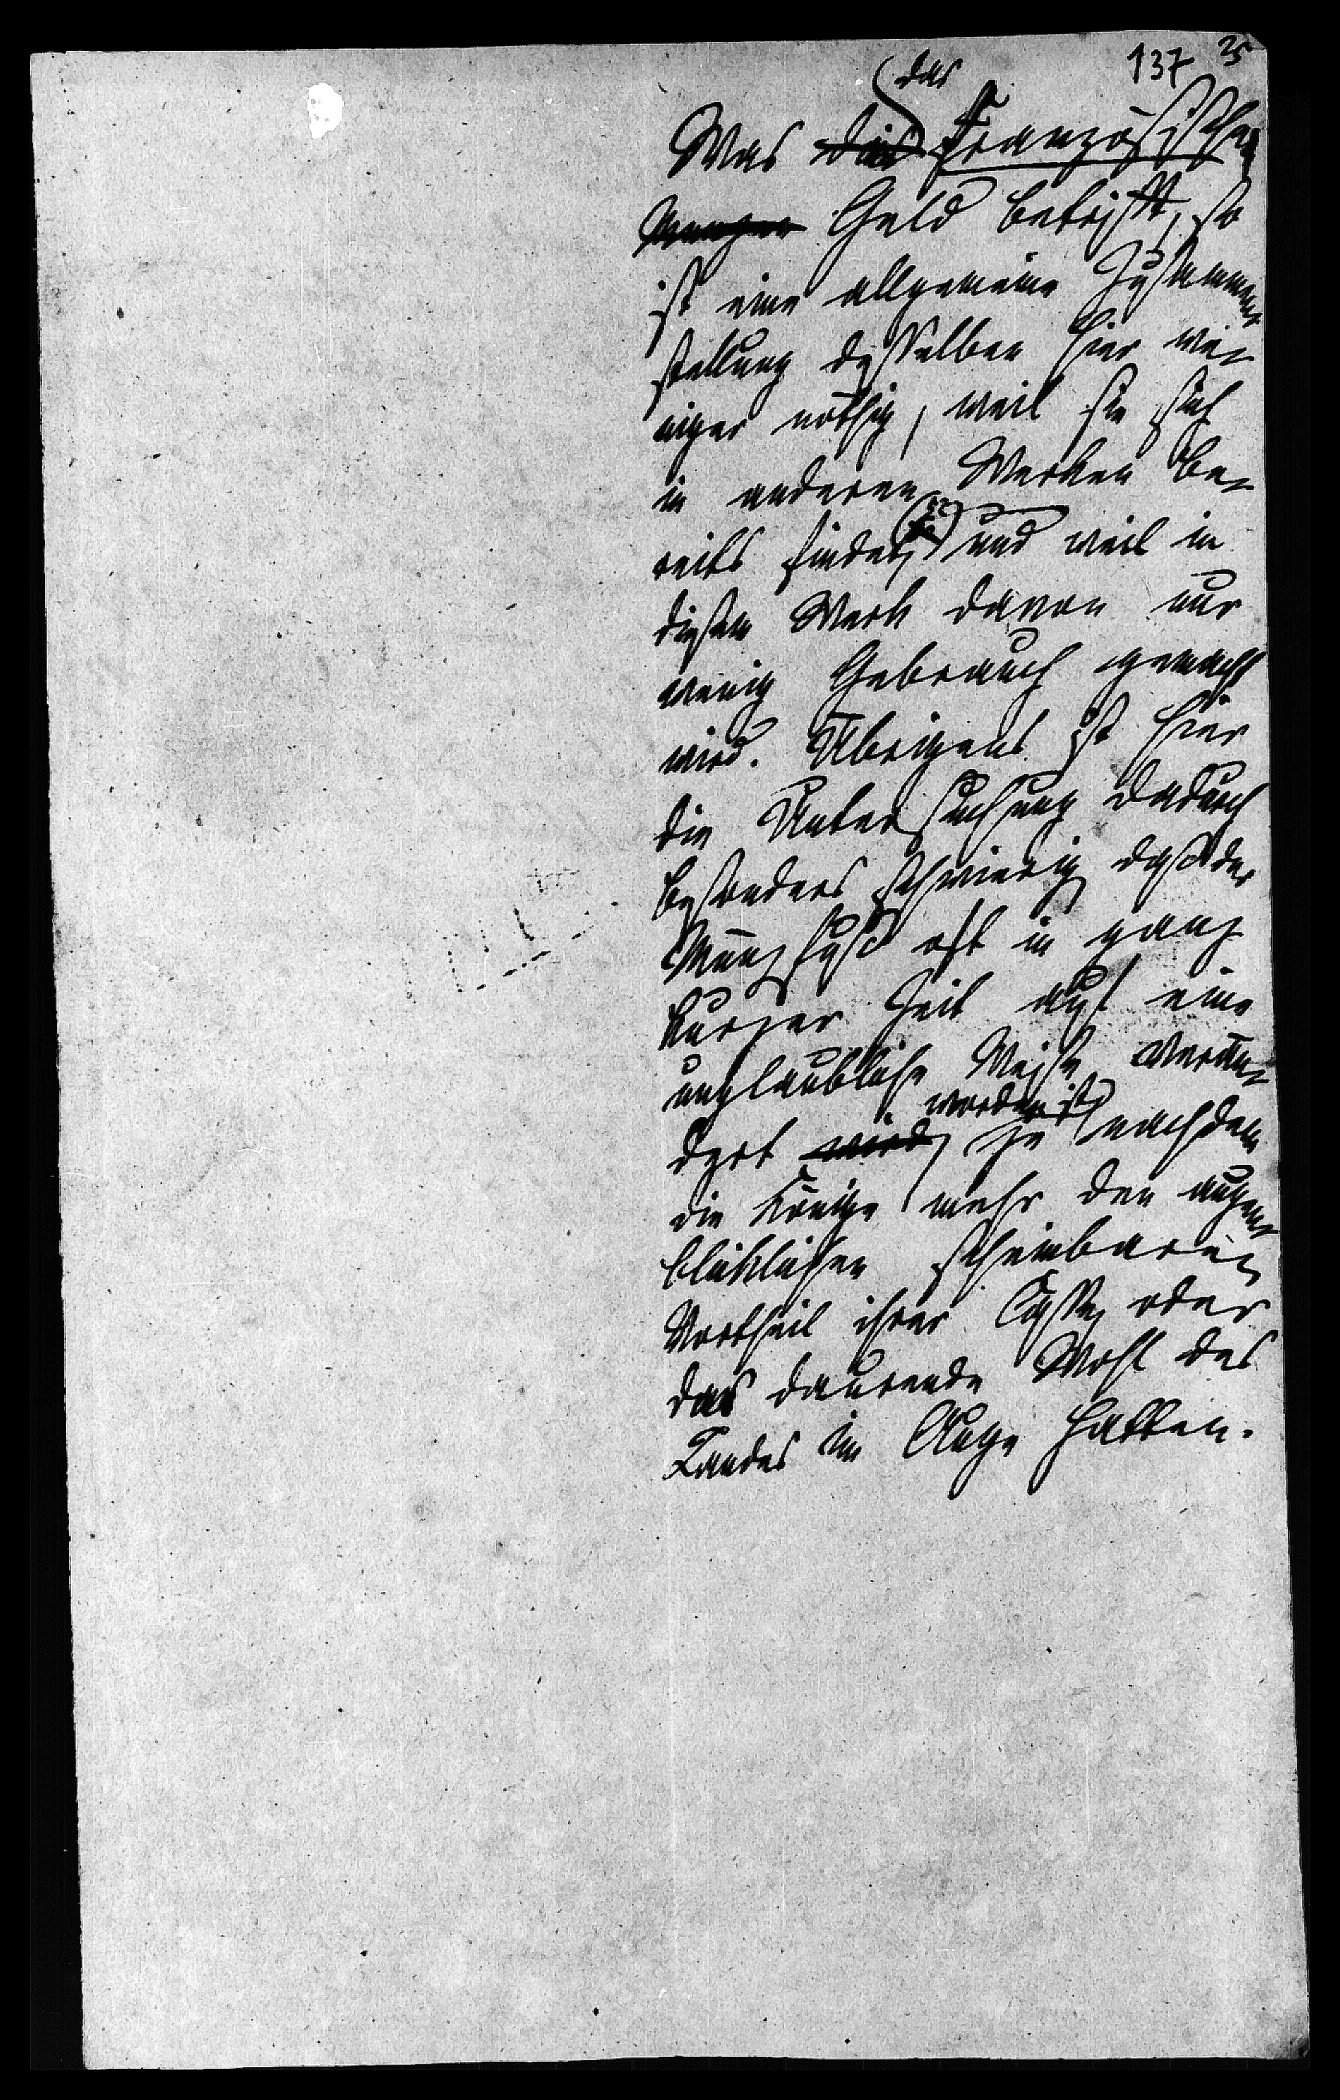 137 25
das
Was die Französische
Münzen Geld betrifft, so
ist eine allgemeine Zusammen
stellung desselben hier we-
niger nöthig, weil sie sich
in anderen Werken be-
reits findet, und weil in
diesem Werk davon nur
wenig Gebrauch gemacht
wird. Übrigens ist hier
die Untersuchung dadurch
besonders schwierig, daß der
Münzfuß oft in ganz
kurzer Zeit auf eine
unglaubliche Weise verän-
worden ist
dert wird, je nachdem
die Könige mehr den augen-
bliklichen scheinbaren
Vortheil ihrer Casse, oder
das daurende Wohl des
Landes im Auge hatten.